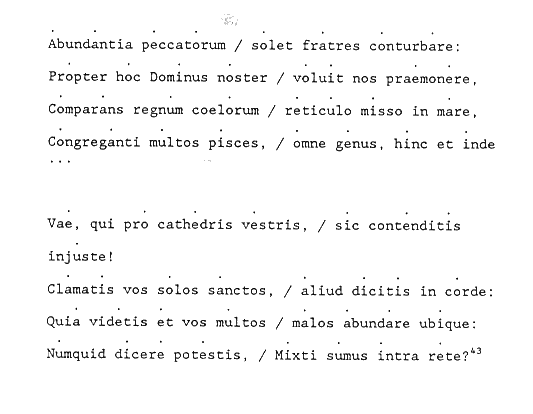 Abundantia peccatorum / solet fratres conturbare:
Propter hoc Dominus noster / voluit nos praemonere,
Comparans regnum coelorum / reticulo misso in mare,
Congreganti multos pisces, / omne genus, hinc et inde
...
Vae, qui pro cathedris vestris, / sic contenditis
injuste!
Clamatis vos solos sanctos, / aliud dicitis in corde:
Quia videtis et vos multos / malos abundare ubique:
Numquid dicere potestis, / Mixti sumus intra rete?43